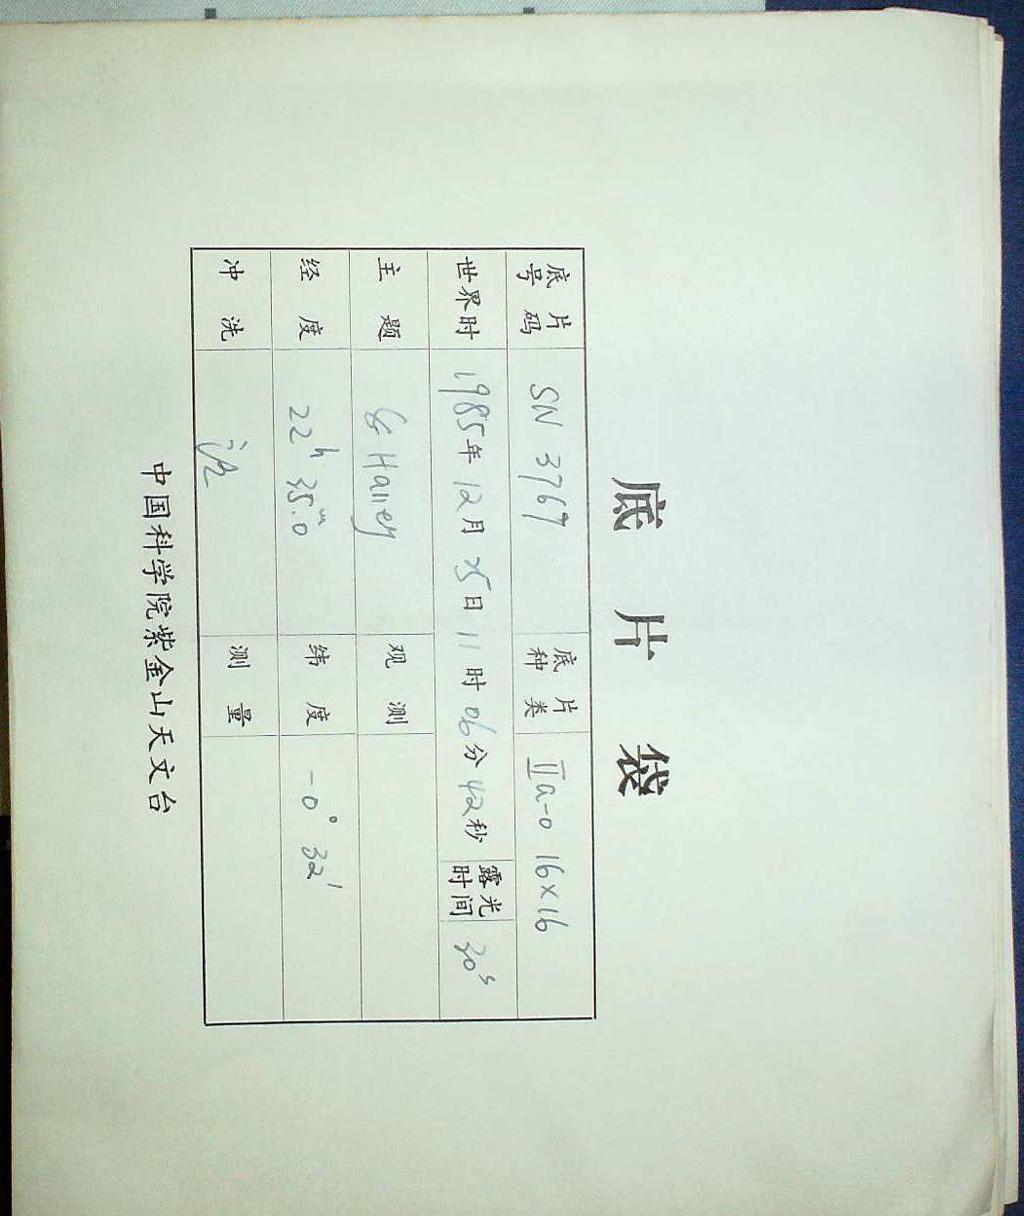 底片袋
底片号码 SN 3767 底片种类 IIa-O 16×16
世界时 1985年12月25日11时06分42秒 露光时间 30s
主题 Halley 观测
经度 22h 35.0m 纬度 -0° 32'
冲洗 测量
中国科学院紫金山天文台